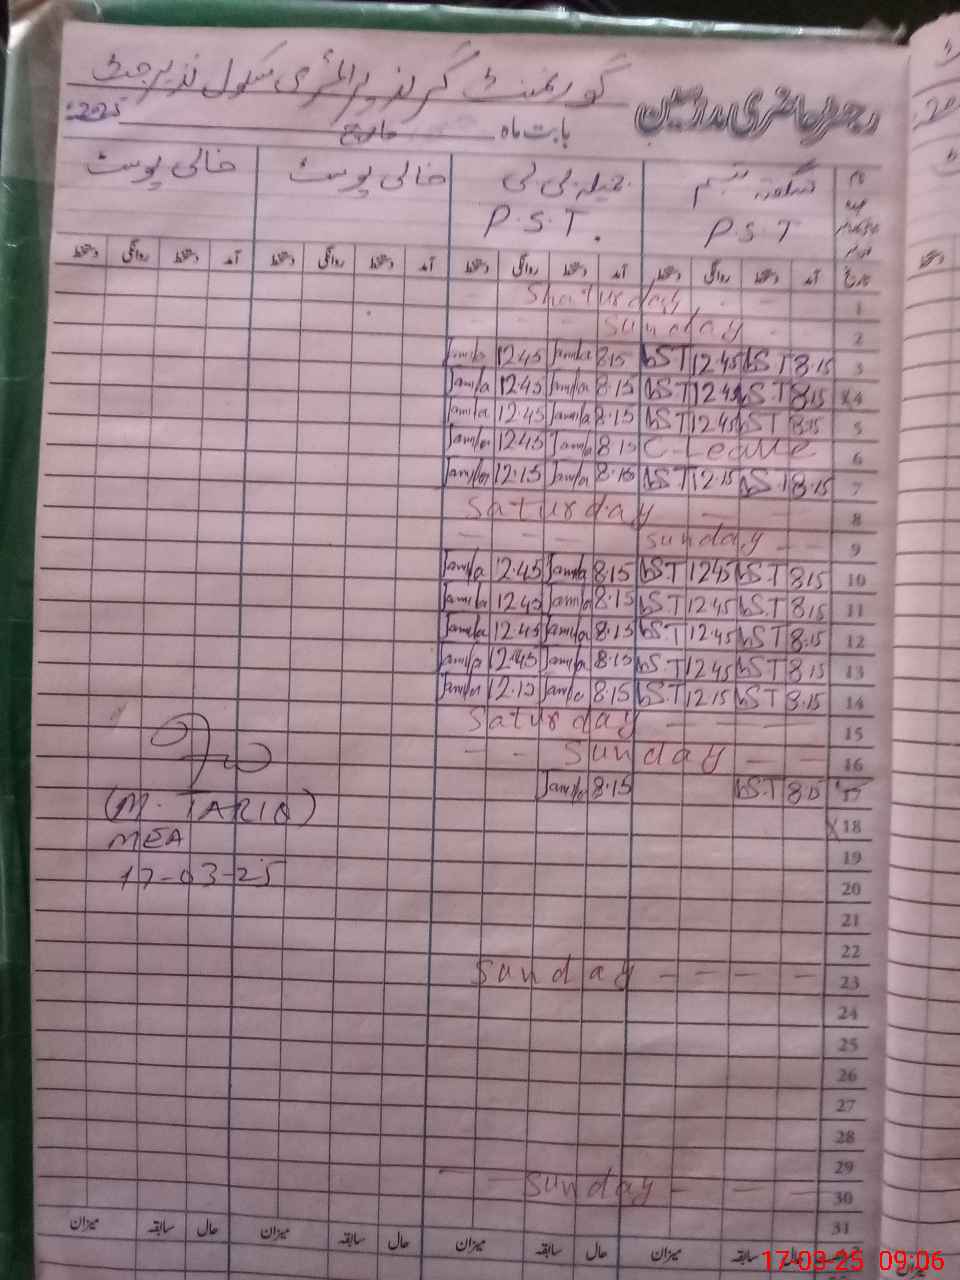 گورنمنٹ گرلز پرائمری سکول نذیر جٹ
رجسٹر حاضری مدرسین
بابت ماہ مارچ 225ء
نام شگفتہ تبسم جمیلہ بی بی خالی پوسٹ خالی پوسٹ
عہدہ P.S.T P.S.T.
تاریخ آمد دستخط روانگی دستخط آمد دستخط روانگی دستخط آمد دستخط روانگی دستخط آمد دستخط روانگی دستخط
1 Shaturday
2 Sunday
3 8.15 bST 12.45 bST 8.15 Jamila 12.45 Jamila
4 8.15 bS.T 12.45 bST 8.15 Jamila 12.45 Jamila
5 8.15 bST 12.45 bST 8.15 Jamila 12.45 Jamila
6 C-Leave 8.15 Jamila 12.45 Jamila
7 8.15 bS.T 12.15 bST 8.15 Jamila 12.15 Jamila
8 Saturday
9 Sunday
10 8.15 bS.T 12.45 bS.T 8.15 Jamila 12.45 Jamila
11 8.15 bS.T 12.45 bS.T 8.15 Jamila 12.45 Jamila
12 8.15 bS.T 12.45 bS.T 8.15 Jamila 12.45 Jamila
13 8.15 bS.T 12.45 bS.T 8.15 Jamila 12.45 Jamila
14 8.15 bS.T 12.15 bS.T 8.15 Jamila 12.15 Jamila
15 Saturday
16 Sunday
17 8.15 bS.T 8.15 Jamila
(M. TARIQ)
18
MEA
19
17-03-25
20
21
22
23 Sunday
24
25
26
27
28
29
30 Sunday
31
حال سابقہ میزان حال سابقہ میزان حال سابقہ میزان حال سابقہ میزان
17-03-25 09:06